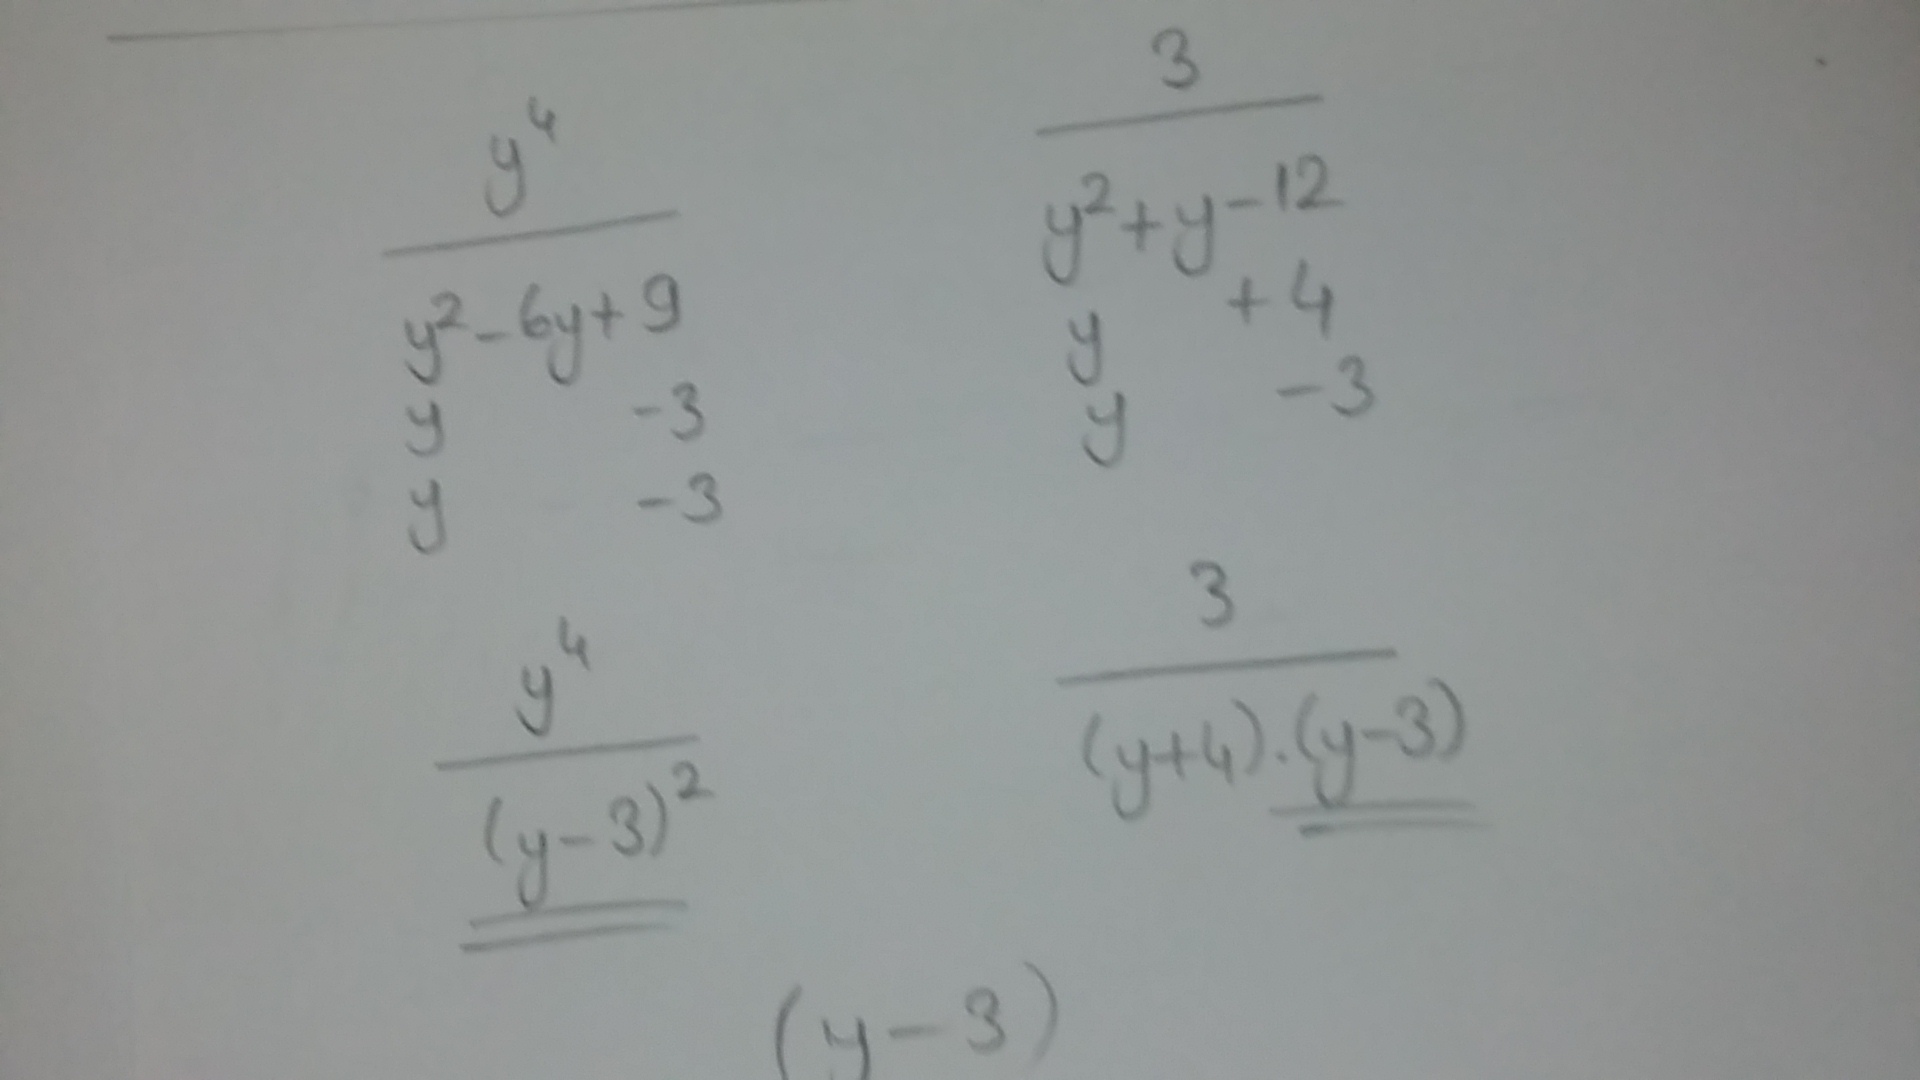 y⁴
y² - 6y + 9
y -3
y -3
3
y² + y - 12
y + 4
y - 3
y⁴
(y - 3)²
3
(y+4).(y-3)
(y - 3)